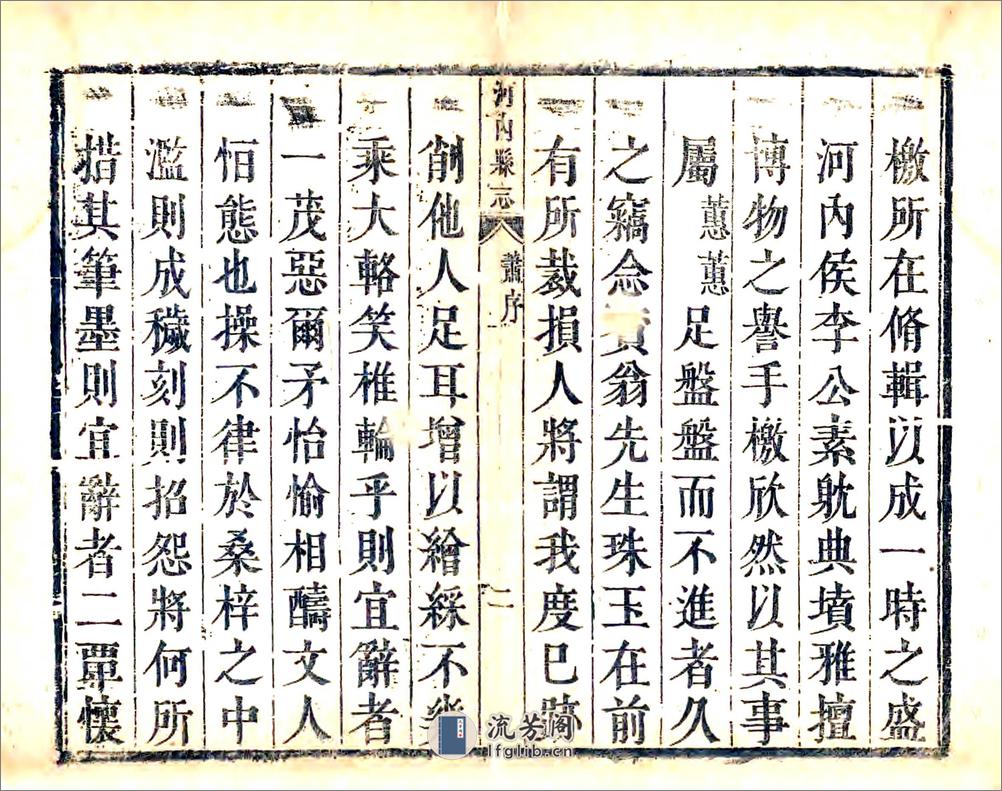 檄所在脩輯以成一時之盛
河內侯李公素躭典墳雅擅
博物之譽手檄欣然以其事
屬蕙蕙足盤盤而不進者久
之竊念翁先生珠玉在前
有所裁損人將謂我度已跡
河內縣志
蕭序
二
削他人足耳增以繪綵不幾
乘大輅笑椎輪乎則宜辭者
一茂惡爾矛怡愉相醻文人
恒態也操不律於桑梓之中
濫則成穢刻則招怨將何所
措其筆墨則宜辭者二覃懷
流芳阁
lfglib.cn